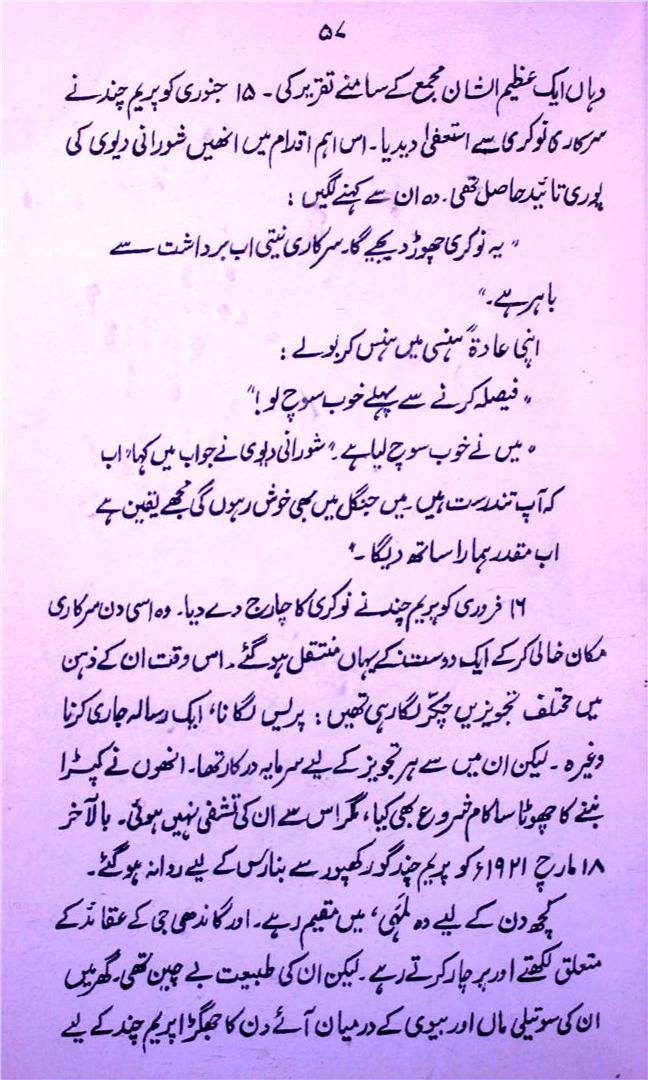 ۵۷
وہاں ایک عظیم الشان مجمع کے سامنے تقریر کی ۔ ۱۵ جنوری کو پریم چند نے
سرکاری نوکری سے استعفیٰ دیدیا۔ اس اہم اقدام میں انھیں شورانی دیوی کی
پوری تائید حاصل تھی۔ وہ ان سے کہنے لگیں :
" یہ نوکری چھوڑ دیجیے گا۔ سرکاری نیتی اب برداشت سے
باہر ہے۔"
اپنی عادۃً ہنسی میں ہنس کر بولے :
" فیصلہ کرنے سے پہلے خوب سوچ لو !"
" میں نے خوب سوچ لیا ہے۔" شورانی دیوی نے جواب میں کہا " اب
کہ آپ تندرست ہیں۔ میں جنگل میں بھی خوش رہوں گی مجھے یقین ہے
اب مقدر ہمارا ساتھ دیگا ۔"
۱۶ فروری کو پریم چند نے نوکری کا چارج دے دیا۔ وہ اسی دن سرکاری
مکان خالی کر کے ایک دوست کے یہاں منتقل ہو گئے۔ اس وقت ان کے ذہن
میں مختلف تجویزیں چکّر لگا رہی تھیں : پریس لگانا، ایک رسالہ جاری کرنا
وغیرہ ۔ لیکن ان میں سے ہر تجویز کے لیے سرمایہ درکار تھا۔ انھوں نے کپڑا
بننے کا چھوٹا سا کام شروع بھی کیا، مگر اس سے ان کی تشفی نہیں ہوئی۔ بالآخر
۱۸ مارچ ۱۹۲۱ء کو پریم چند گورکھپور سے بنارس کے لیے روانہ ہو گئے۔
کچھ دن کے لیے وہ لمہی، میں مقیم رہے۔ اور گاندھی جی کے عقائد کے
متعلق لکھتے اور پرچار کرتے رہے۔ لیکن ان کی طبیعت بے چین تھی۔ گھر میں
ان کی سوتیلی ماں اور بیوی کے درمیان آئے دن کا جھگڑا پریم چند کے لیے